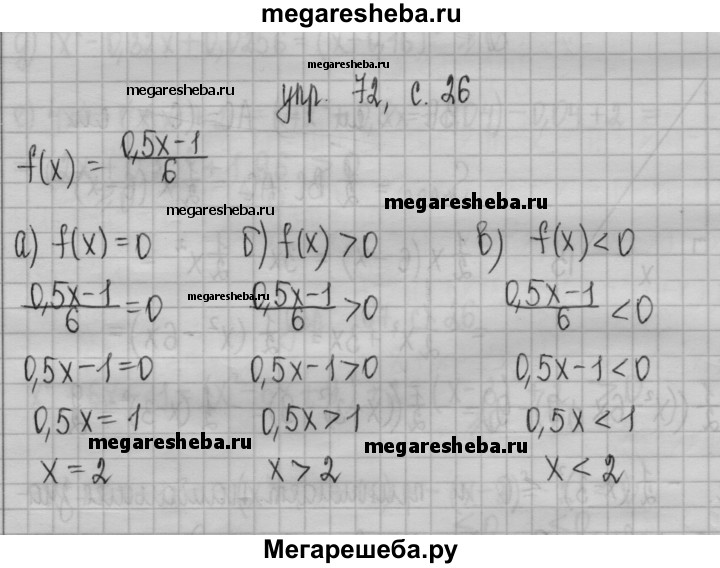 megaresheba.ru
megaresheba.ru
megaresheba.ru
упр. 72, с. 26
f(x) = (0,5x-1)/6
megaresheba.ru
megaresheba.ru
а) f(x)=0 б) f(x)>0 в) f(x)<0
megaresheba.ru
(0,5x-1)/6=0 (0,5x-1)/6>0 (0,5x-1)/6<0
0,5x-1=0 0,5x-1>0 0,5x-1<0
0,5x=1 0,5x>1 0,5x<1
megaresheba.ru megaresheba.ru
x=2 x>2 x<2
Мегарешеба.ру